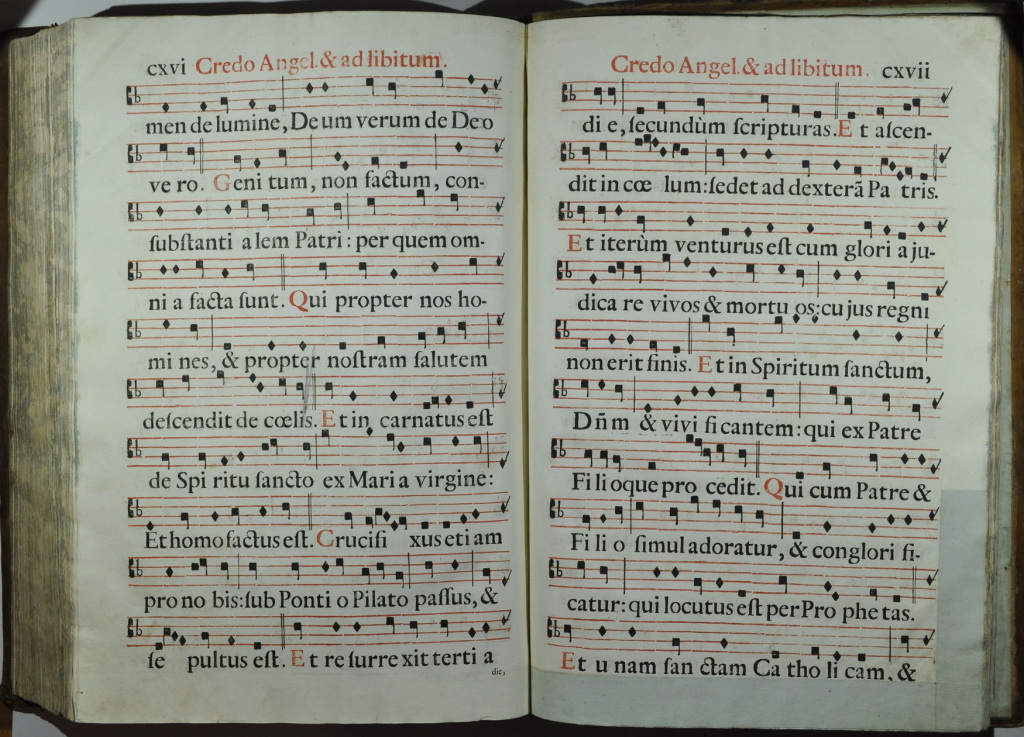 cxvi Credo Angel. & ad libitum.
men de lumine, De um verum de De o
ve ro. Geni tum, non factum, con-
ſubſtanti a lem Patri : per quem om-
ni a facta ſunt. Qui propter nos ho-
mi nes, & propter noſtram ſalutem
deſcendit de cœlis. Et in carnatus eſt
de Spi ritu ſancto ex Mari a virgine:
Et homo factus eſt. Crucifi xus eti am
pro no bis: ſub Ponti o Pilato paſſus, &
ſe pultus eſt. Et re ſurre xit terti a
die,
Credo Angel. & ad libitum. cxvii
di e, ſecundùm ſcripturas. Et aſcen-
dit in cœ lum: ſedet ad dexterã Pa tris.
Et iterùm venturus eſt cum glori a ju-
dica re vivos & mortu os: cu jus regni
non erit finis. Et in Spiritum ſanctum,
Dñm & vivi fi cantem: qui ex Patre
Fi li oque pro cedit. Qui cum Patre &
Fi li o ſimul adoratur, & conglori fi-
catur: qui locutus eſt per Pro phe tas.
Et u nam ſan ctam Ca tho li cam, &